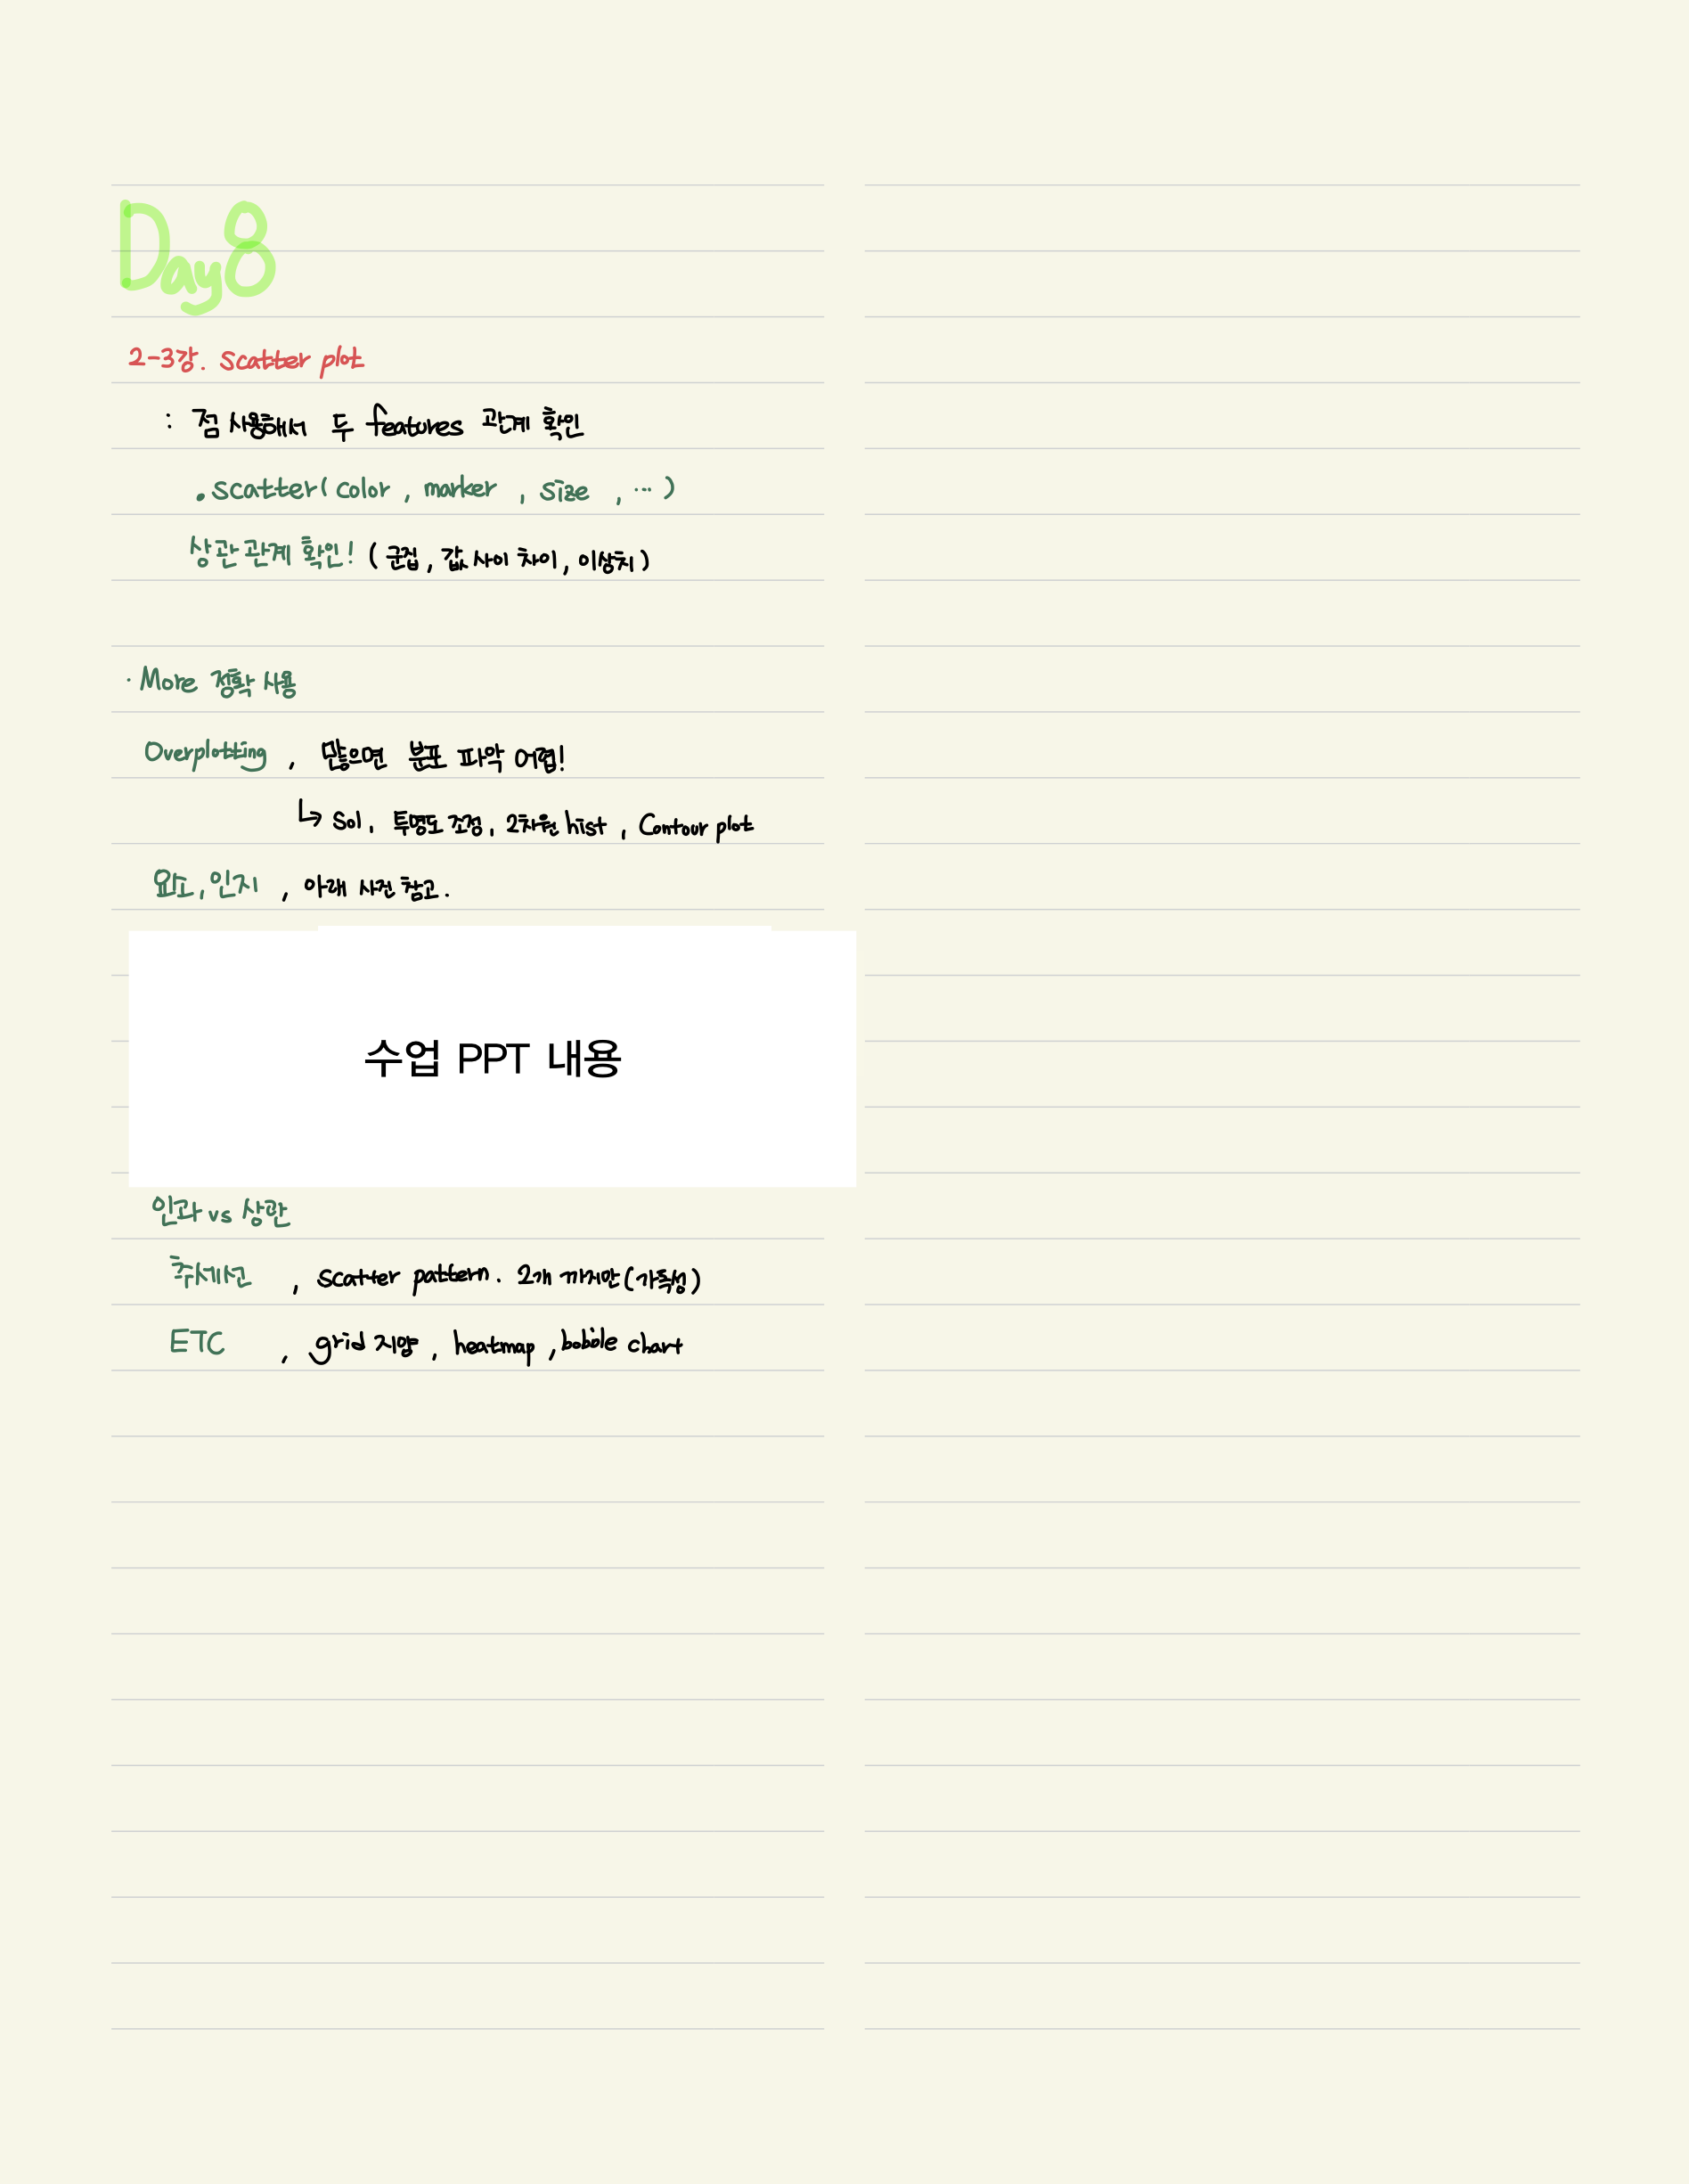 Day 8
2-3강. scatter plot
: 점 사용해서 두 features 관계 확인
.scatter( color , marker , size , ... )
상관 관계 확인! ( 군집, 값 사이 차이, 이상치 )
· More 정확 사용
Overplotting , 많으면 분포 파악 어렵!
↳ Sol. 투명도 조정, 2차원 hist , Contour plot
요소, 인지 , 아래 사진 참고.
수업 PPT 내용
인과 vs 상관
추세선 , scatter pattern. 2개 까지만 (가독성)
ETC , grid 지양 , heatmap , bobble chart